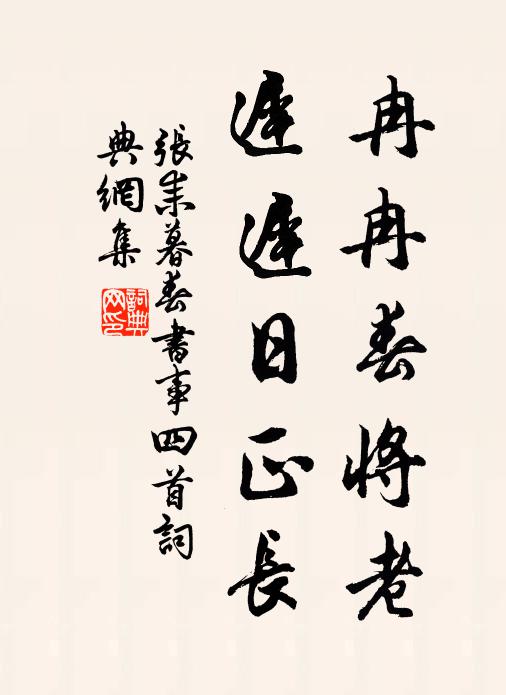 冉冉春將老
遲遲日正長
張耒暮春書事四首詞
典網集
詞典
网印